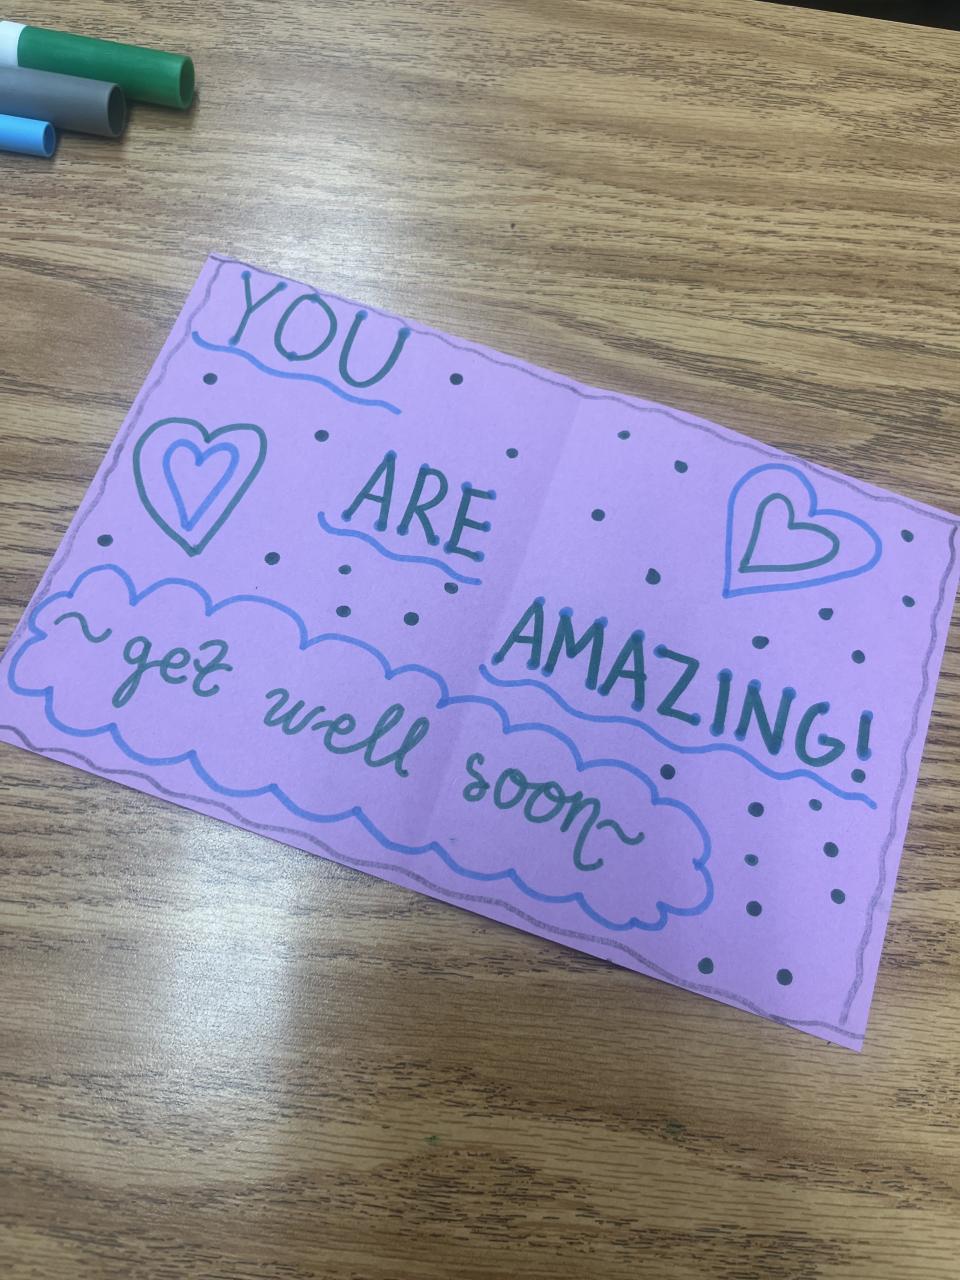 YOU
ARE
AMAZING!
~get well soon~